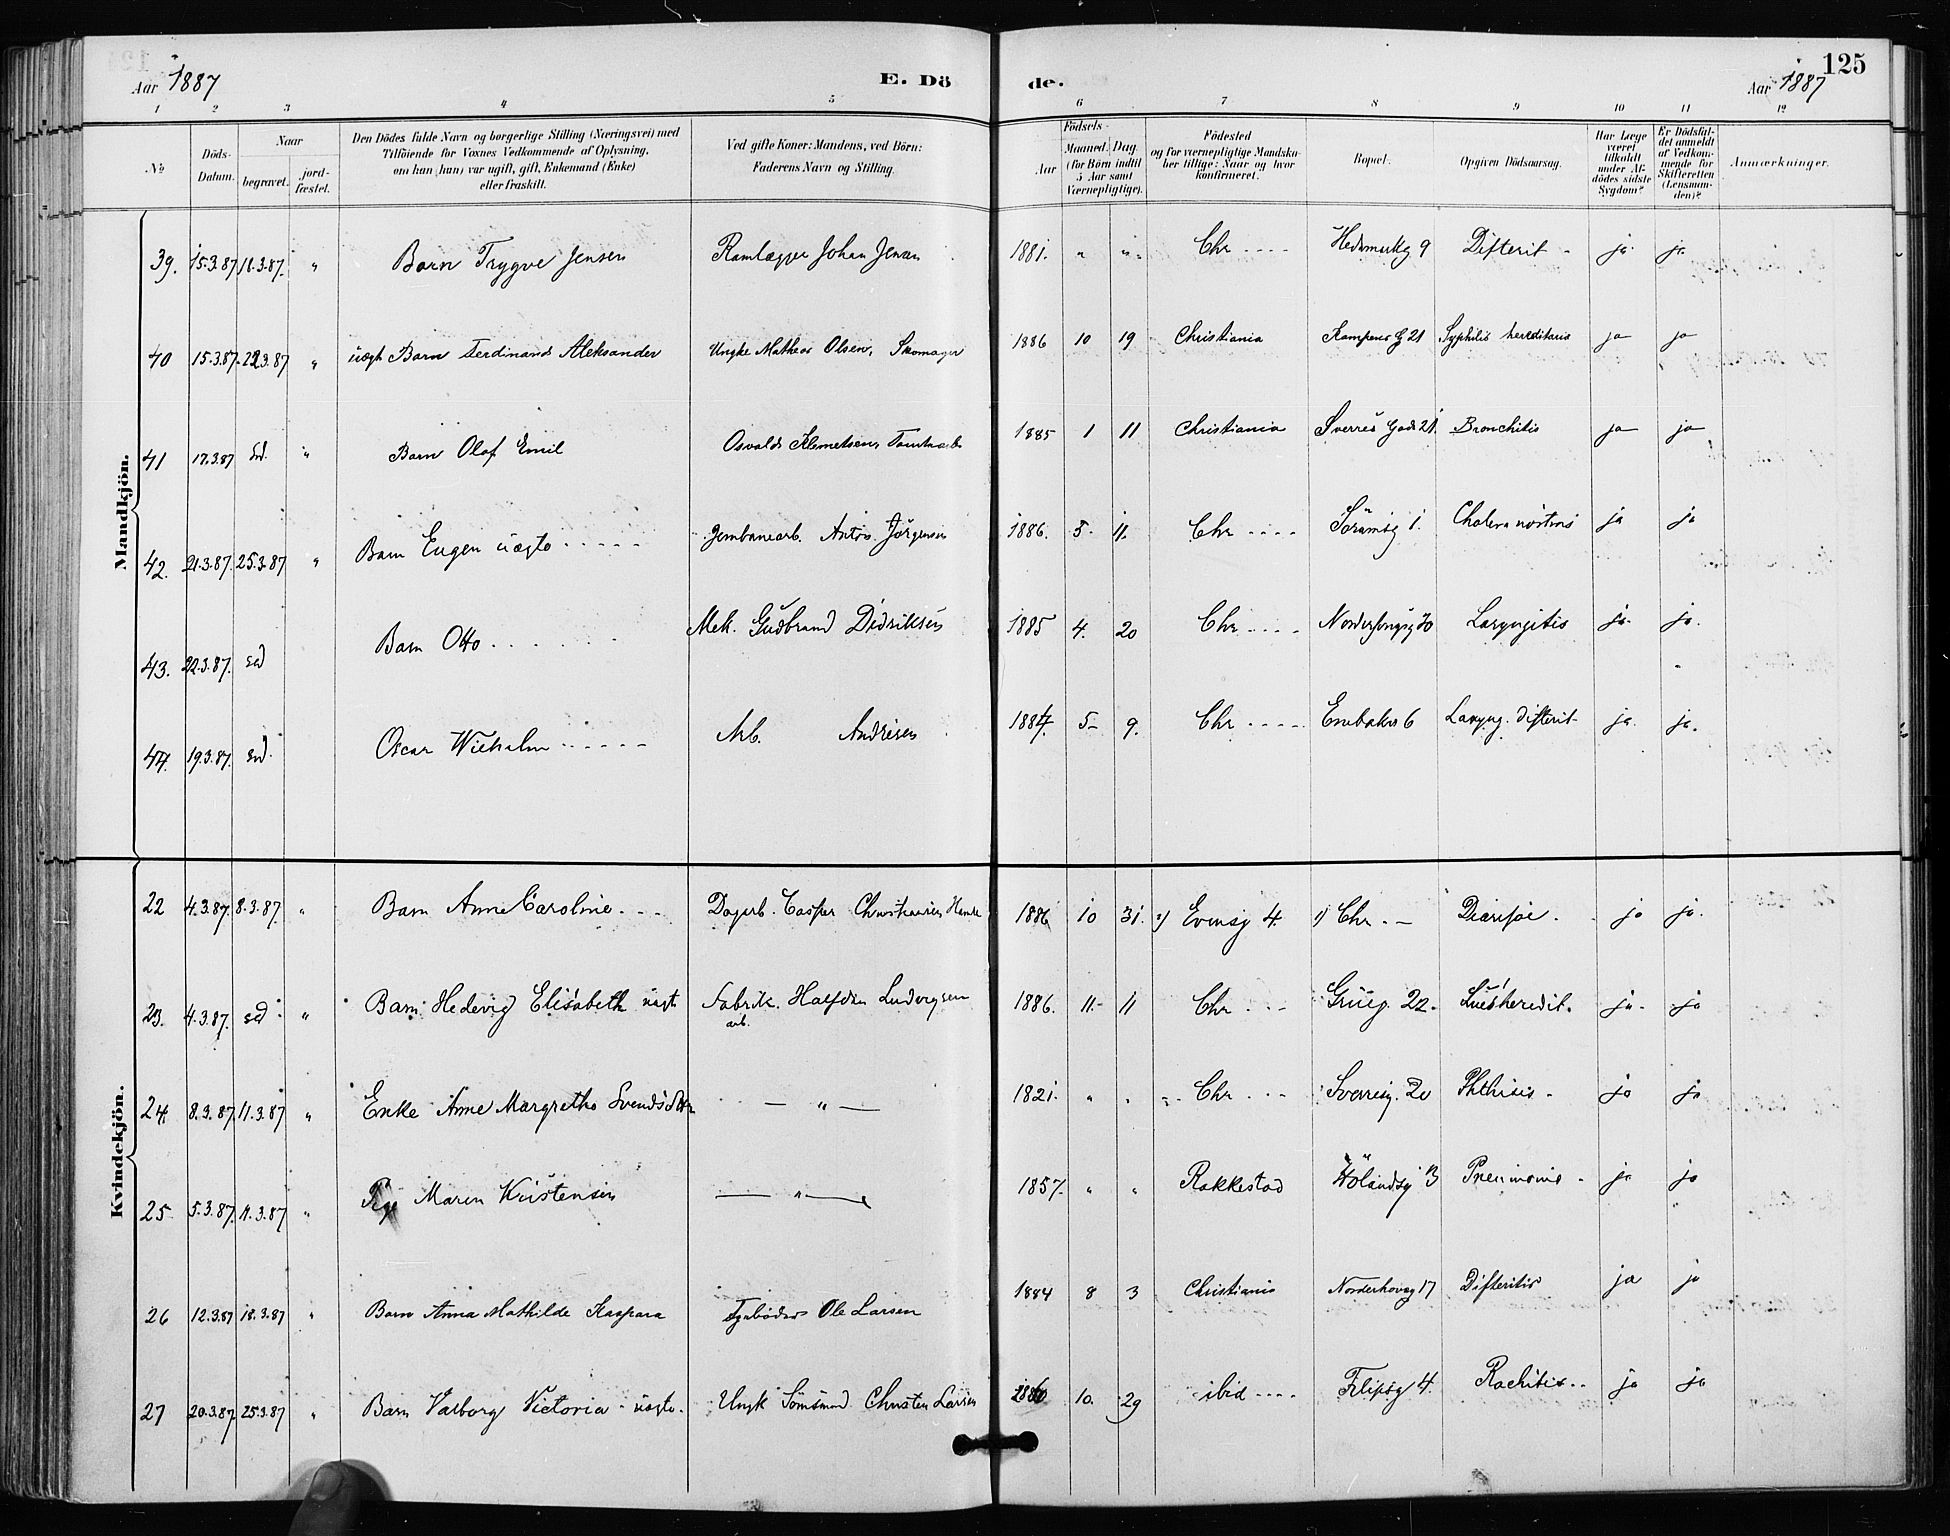 Aar 1887 E. Döde. Aar 1887 125
1 2 3 4 5 6 7 8 9 10 11 12
No
Döds-Datum.
Naar
begravet.
jord-fæstet.
Den Dödes fulde Navn og borgerlige Stilling (Næringsvei) med
Tilföiende for Voxnes Vedkommende af Oplysning,
om han (hun) var ugift, gift, Enkemand (Enke)
eller fraskilt.
Ved gifte Koner: Mandens, ved Börn:
Faderens Navn og Stilling.
Födsels-
Aar
Maaned. Dag.
(for Börn indtil
5 Aar samt
Værnepligtige).
Födested
og for værnepligtige Mandska-
ber tillige: Naar og hvor
konfirmeret.
Bopæl.
Opgiven Dödsaarsag.
Har Læge
været
tilkaldt
under Af-
dödes sidste
Sygdom?
Er Dödsfal-
det anmeldt
af Vedkom-
mende for
Skifteretten
(Lensman-
den)?
Anmærkninger.
Mandkjön.
39. 15.3.87 18.3.87. " Barn Trygve Jensen Johan Jensen 1881. " " Chr .... 9 Difterit - ja. ja.
40 15.3.87. 22.3.87 " uægt Barn Ferdinand Aleksander Ungke Matheas Olsen, Skomager 1886 10 19 Christiania Kampens G 21 Syphilis hereditaris ja ja
41 17.3.87 sd. " Barn Olaf Emil Osvald Klemetsen, 1885 1 11 Christiania Sverres Gade 21. Bronchitis ja ja
42. 21.3.87. 25.3.87 " Barn Eugen uægte ..... Jernbanearb. Anton Jörgensen 1886. 5. 11. Chr .... 1. Cholera ja ja
43. 22.3.87. sd Barn Otto ..... Mek. Gudbrand Didriksen 1885 4. 20 Chr .... Laryngitis ja. ja.
44. 19.3.87. sd. Oscar Wilhelm ...... Arb. Andresen 1884. 5- 9. Chr .... Enebakv 6 Laryng. difterit- ja. ja.
Kvindekjön.
22 4.3.87. 8.3.87. " Barn Anne Caroline ... Dagarb. Casper Christiansen 1886 10 31. Evensg 4. Chr. - ja ja.
23. 4.3.87. sd. " Barn Hedevig Elisabeth uægt Fabrik. arb. Halfdan Ludvigsen 1886. 11- 11 Chr ... Grüeg. 22. Lues heredit. ja. ja
24. 8.3.87. 11.3.87 " Enke Anne Margrethe - " - 1821. " " Chr ... Sverresg. 20 Phthisis - ja ja
25 5.3.87. 11.3.87 " Pige Maren Kristensen - " - 1857. " " Rakkestad Hölandsg 13 Pneumonie - ja ja
26 12.3.87 18.3.87 " Barn Anna Mathilde Kaspara Ole Larsen 1884 8 3 Christiania Norderhovsg 17 Difteritis ja ja
27 20.3.87 25.3.87 " Barn Valborg Victoria uægte. Ungk Christen Larsen 10. 29 ibid .... Filipsg 4. Rachitis .. ja ja